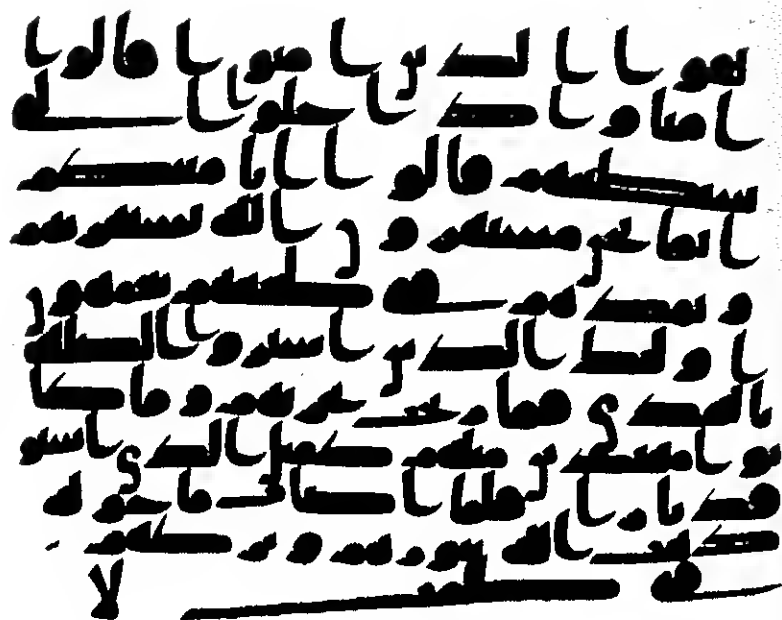 لقوا الذين امنوا قالوا
امنا واذا خلوا الى
شيطينهم قالوا انا معكم
انما نحن مستهزون الله يستهزى بهم
و يمدهم فى طغينهم يعمهون
اولئك الذين اشتروا الضللة
بالهدى فما ربحت تجرتهم وما كا
نوا مهتدين مثلهم كمثل الذى استو
قد نارا فلما اضات ما حوله
ذهب الله بنورهم و تركهم
فى ظلمت لا